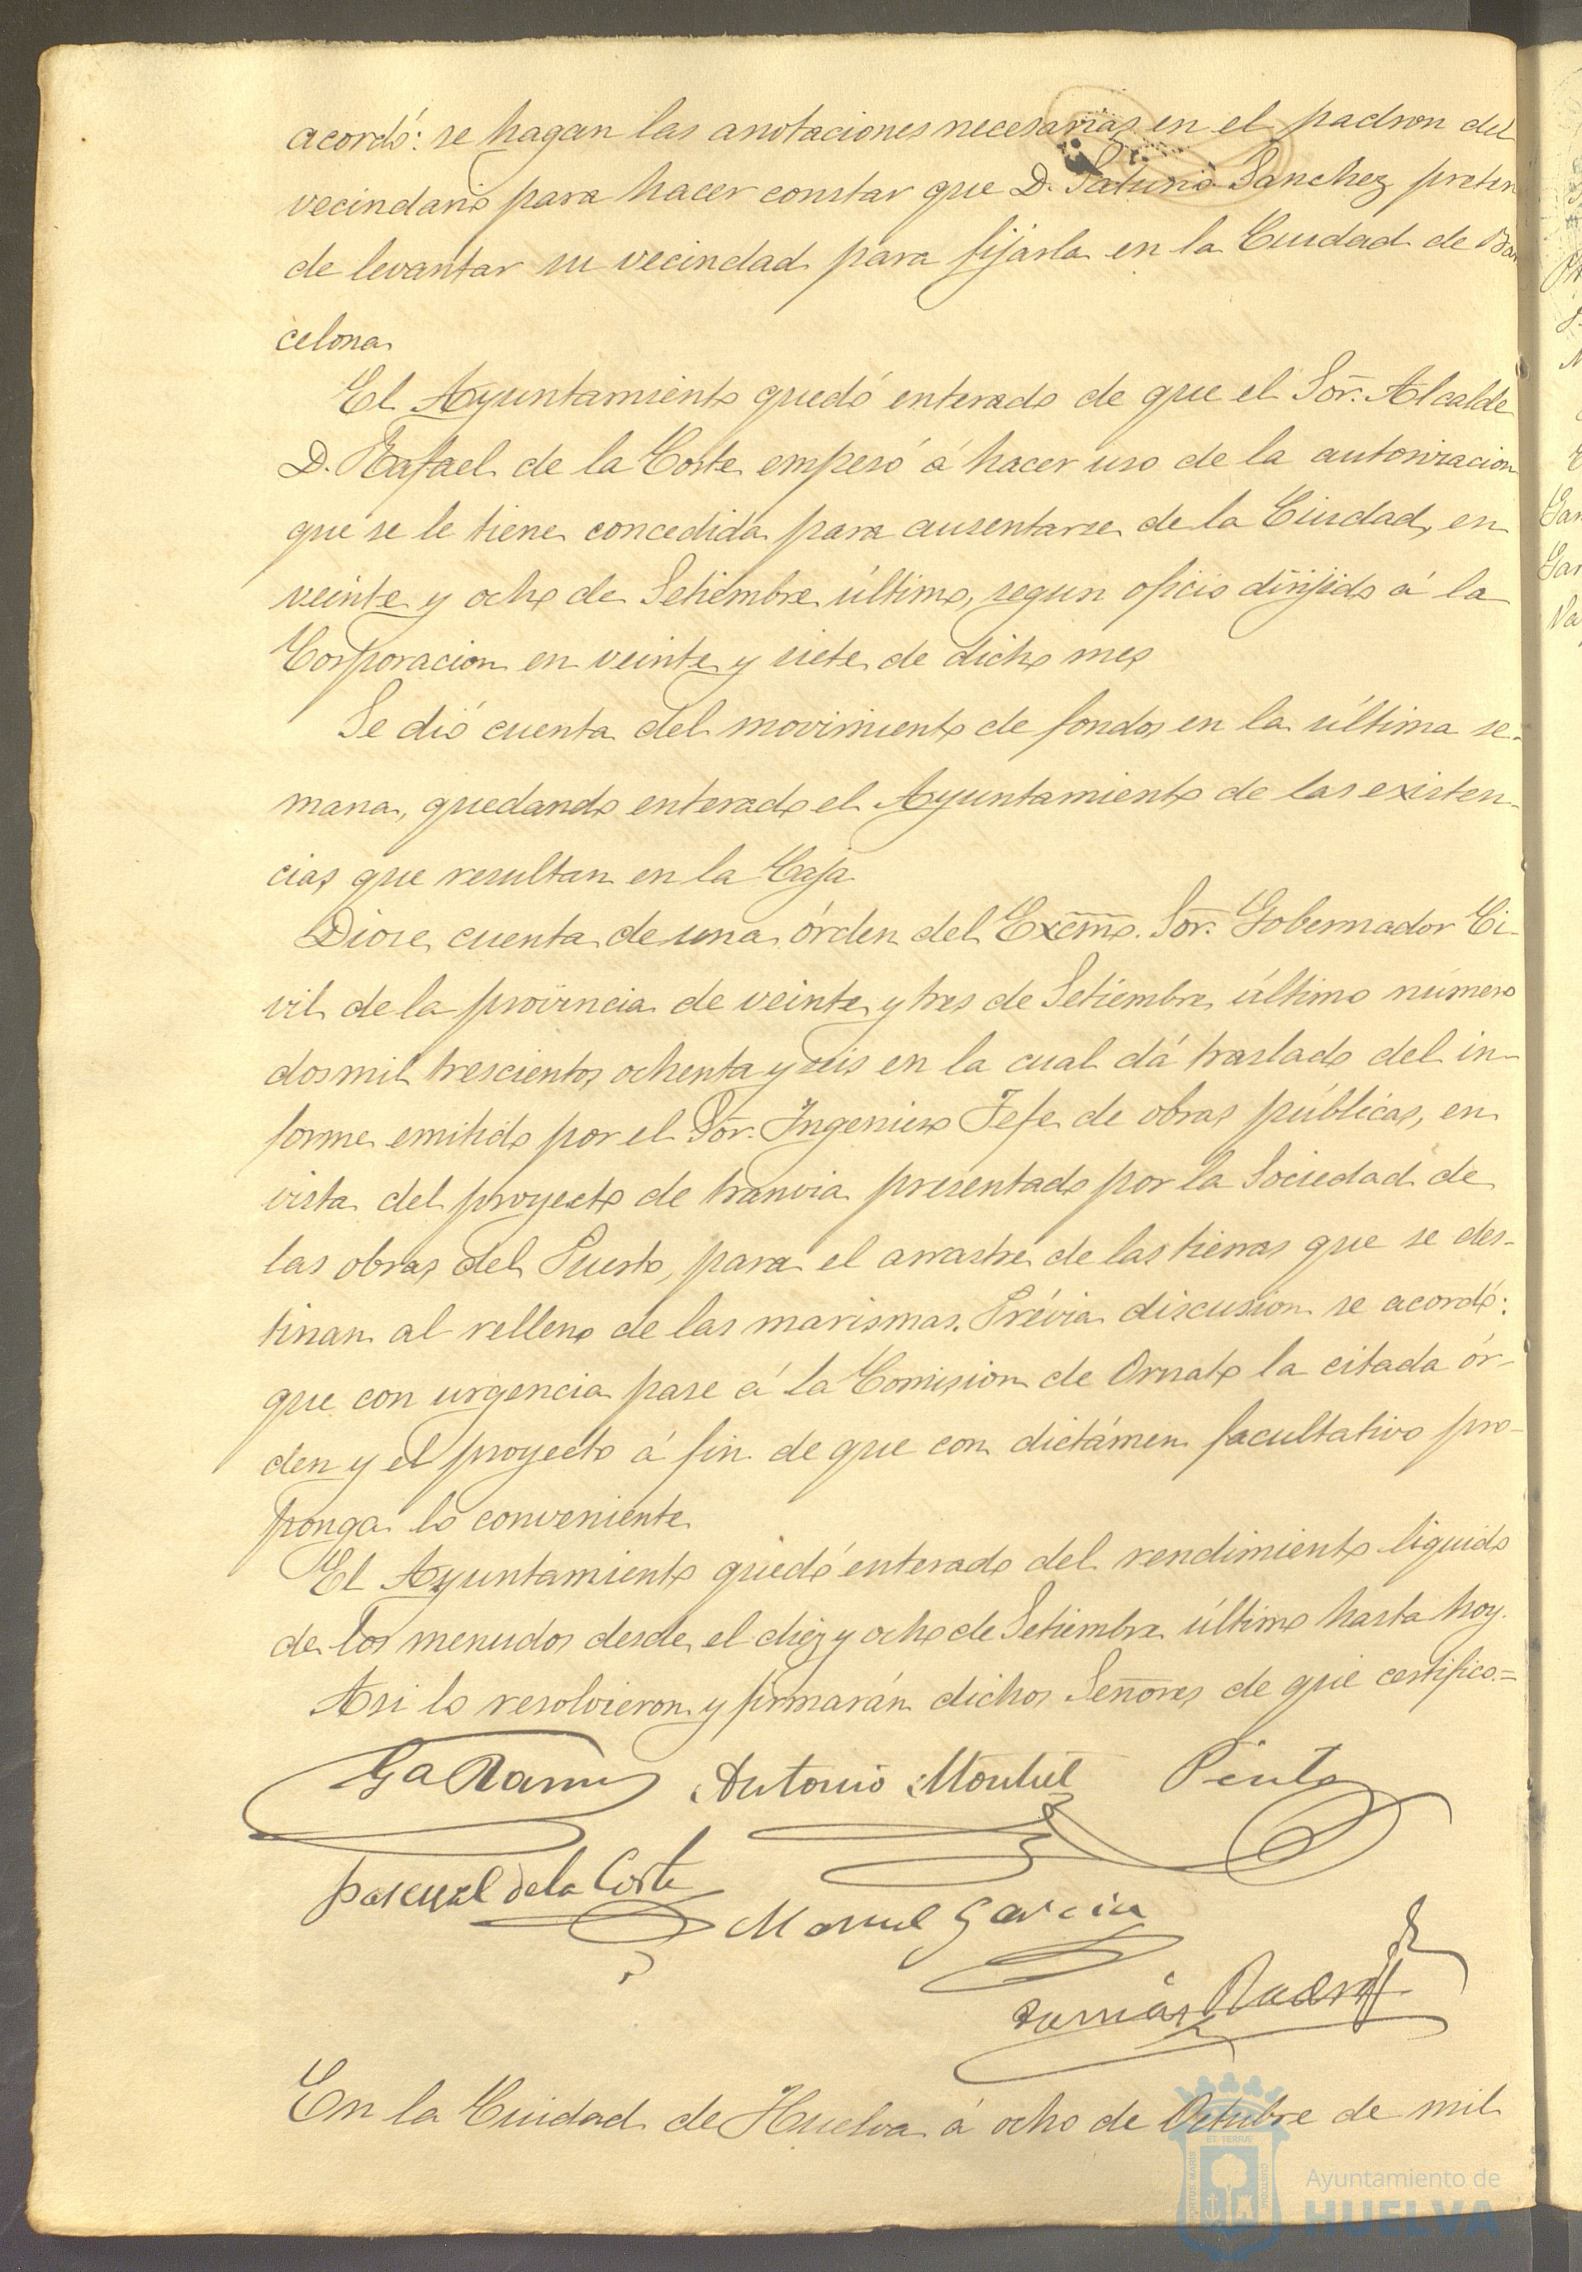 acordó: se hagan las anotaciones necesarias en el padron del
vecindario para hacer constar que D. Saturio Sanchez preten
de levantar su vecindad para fijarla en la Ciudad de Bar
celona
El Ayuntamiento quedó enterado de que el Sor. Alcalde
D. Rafael de la Corte empesó á hacer uso de la autorizacion
que se le tiene concedida para ausentarse de la Ciudad, en
veinte y ocho de Setiembre último, segun oficio dirijido á la
Corporacion en veinte y siete de dicho mes
Se dió cuenta del movimiento de fondos en la última se-
mana, quedando enterado el Ayuntamiento de las existen-
cias que resultan en la Caja
Diose cuenta de una órden del Excmo. Sor. Gobernador Ci-
vil de la provincia de veinte y tres de Setiembre último número
dosmil trescientos ochenta y seis en la cual dá traslado del in-
forme emitido por el Sor. Ingeniero Jefe de obras públicas, en
vista del proyecto de tranvia presentado por la Sociedad de
las obras del Puerto, para el arrastre de las tierras que se des-
tinan al relleno de las marismas. Prévia discusion se acordó:
que con urgencia pase á la Comision de Ornato la citada ór-
den y el proyecto á fin de que con dictámen facultativo pro-
ponga lo conveniente
El Ayuntamiento quedó enterado del rendimiento liquido
de los menudos desde el diez y ocho de Setiembre último hasta hoy.
Asi lo resolvieron y firmarán dichos Señores de que certifico.=
Ga Ramos Antonio Montiel Pinto
Pascual de la Corte
Manuel Garcia
Tomás
En la Ciudad de Huelva á ocho de Octubre de mil
Ayuntamiento de
HUELVA